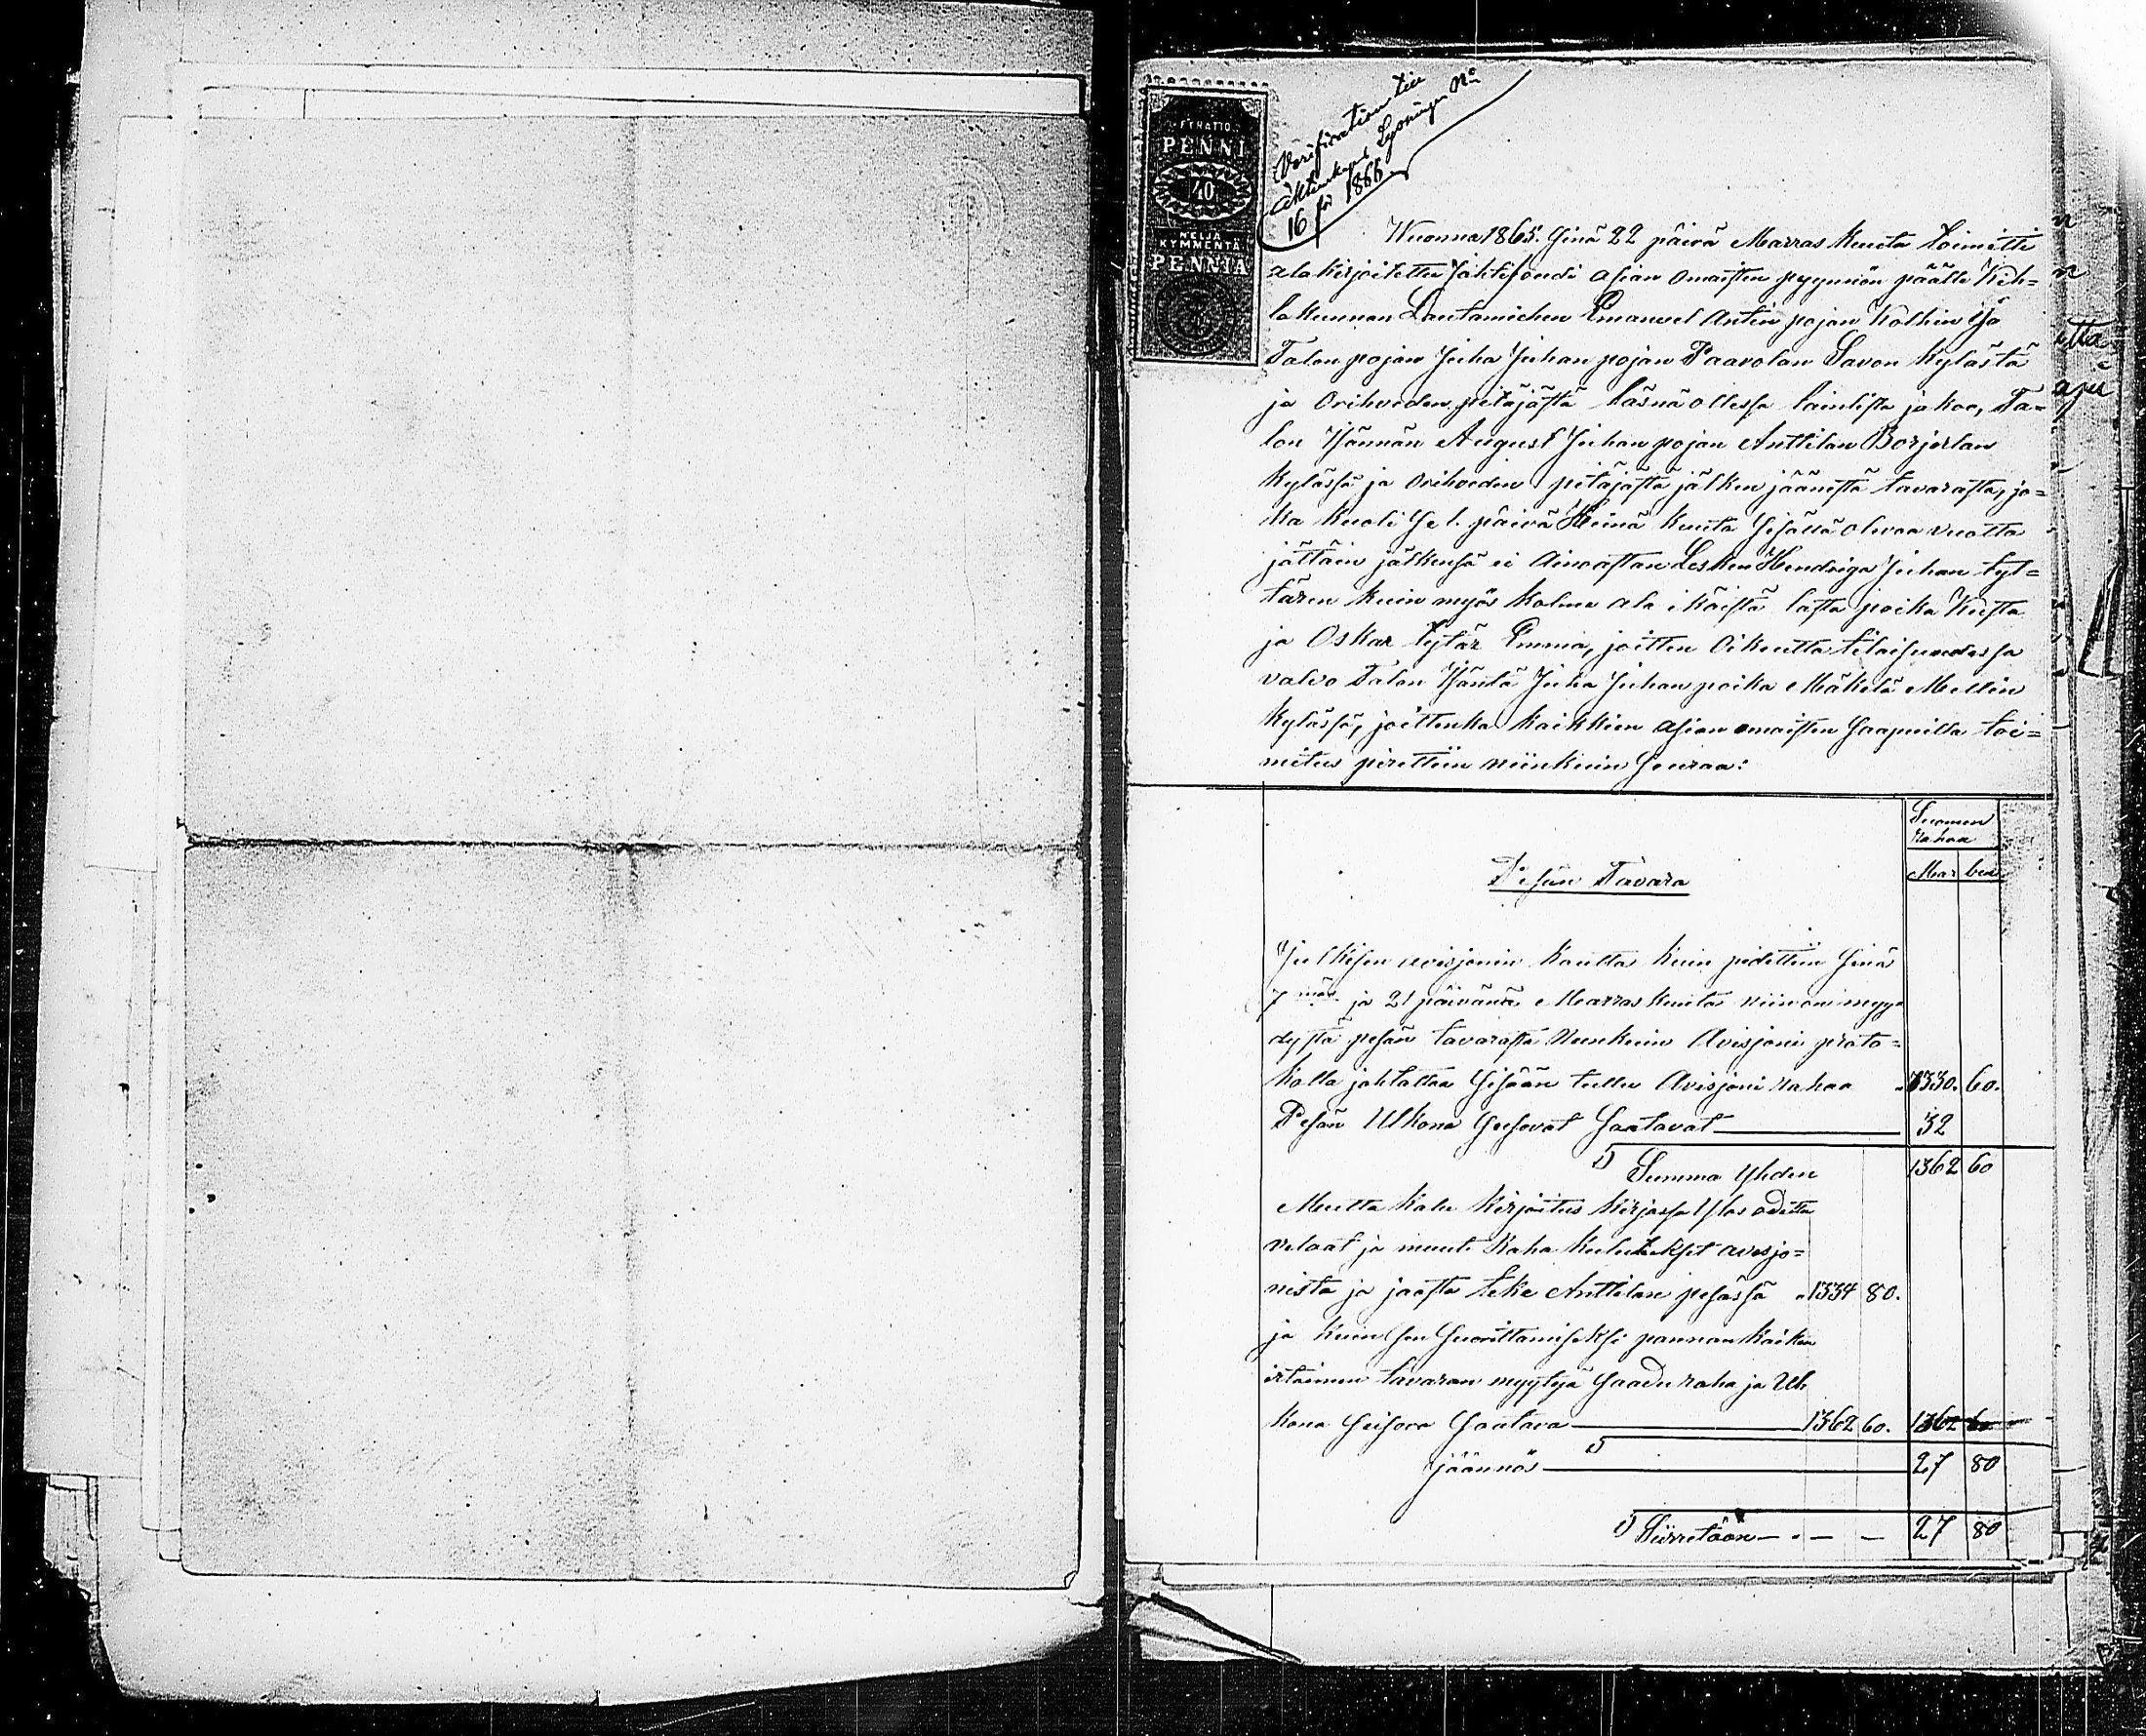 FYRATIO
PENNI
40
NELJÄ
KYMMENTÄ
PENNIÄ
Verification till
Lysningen No
16 för 1866
Wuonna 1865. Sinä 22 päivä Marras kuuta toimitti
alakirjoitettu Jahtifoudi asian omaisten pyynnön päälle Kih=
lakunnan Lautamiehen Emanuel Antin pojan Kolkin ja
Talon pojan Juha Juhan pojan Paavolan Savon Kylästä
ja Oriveden pitäjästä läsnä ollessa lainlista jakoa, Ta=
lon Isännän August Juhan pojan Anttilan
kylässä ja Oriveden pitäjästä jälken jäänestä tavarasta, jo=
ka kuoli Se 1. päivä Heinä kuuta Sisällä olevaa vuotta
jättäin jälkensä ei Ainoastan Lesken Hendriga Juhan tyt=
tären kuin myös kolme ala ikäistä lasta poika Kusta
ja Oskar tytär Emma, joitten Oikeutta tilaisuudessa
valvo Talon Isäntä Juha Juhan poika Mäkelä Mellin
kylässä, joittenka kaikkien asian omaisten Saapuilla toi=
mitus pirettiin niinkuin Seuraa:
Suomen
rahaa
Mar
Pesän Tavara
Julkisen avisjonin kautta kuin pidettiin Sinä
7 mä. ja 21 päivänä Marras kuuta niin on myy=
dystä pesän tavarasta Niinkuin Avisjoni proto=
kolla johtattaa Sisään tullu Avisjoni rahaa 1330. 60.
Pesän Ulkona Seisovat Saatavat 32
Summa Yhden 1362 60
Mutta kalu kirjoitus kirjassa
velaat ja muut Raha kulutukset avisjo=
nista ja jaosta teke Anttilan pesässä 1334 80.
ja kuin Sen Suorittamiseksi pannan kaiken
irtaimen tavaran myytyä Saadu raha ja Ul
kona Seisova Saatava 1362 60. 1362 60
jäännös 27 80
Siirretään 27 80